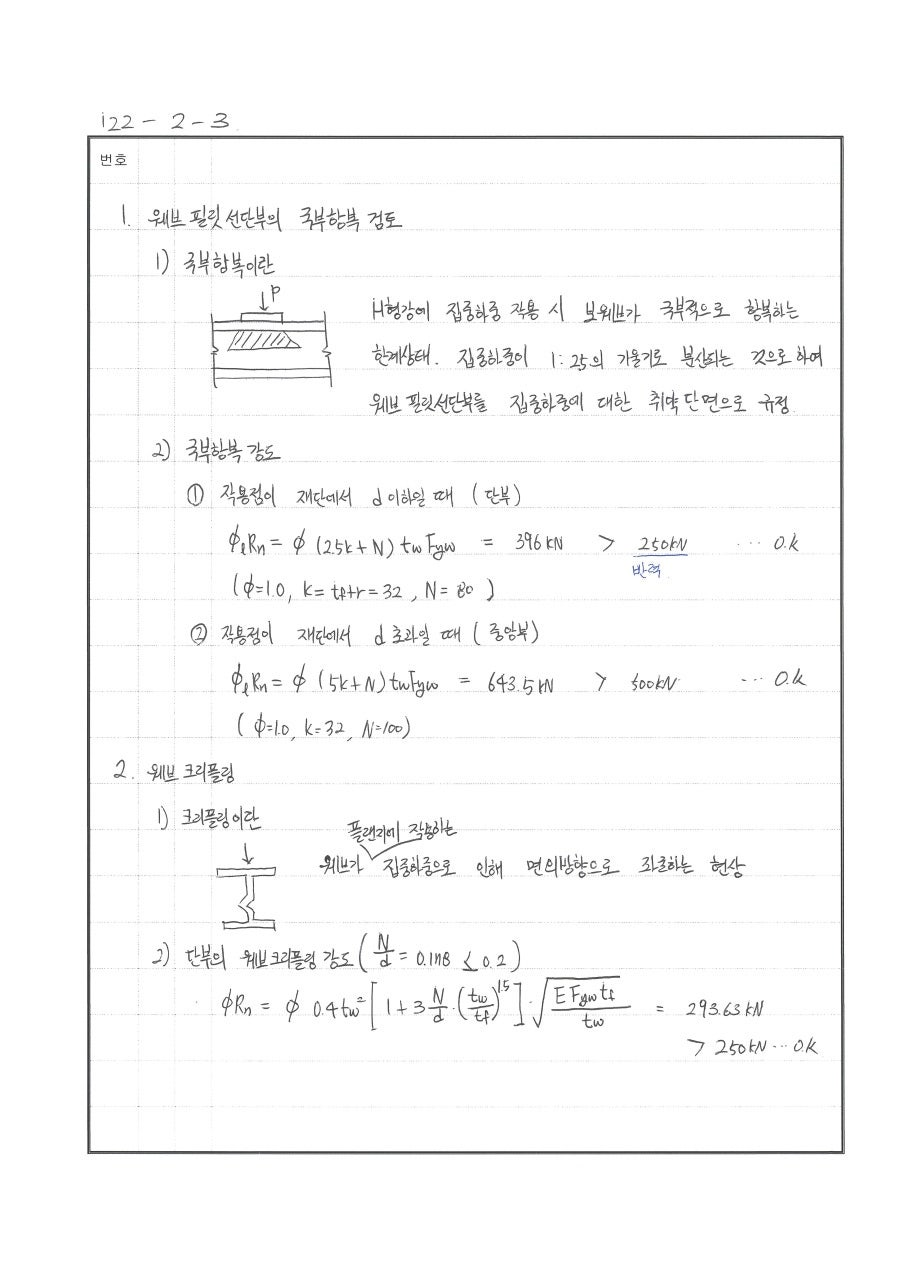 122 - 2 - 3
번호
1. 웨브 필릿 선단부의 국부항복 검토
1) 국부항복이란
P
H형강에 집중하중 작용 시 보웨브가 국부적으로 항복하는
한계상태. 집중하중이 1:2.5의 기울기로 분산되는 것으로 하여
웨브 필릿선단부를 집중하중에 대한 취약단면으로 규정
2) 국부항복 강도
① 작용점이 재단에서 d 이하일 때 (단부)
ϕℓRn = ϕ (2.5k+N) tw Fyw = 396 kN > 250kN ··· O.K
반력
(ϕ=1.0, k= tf+r = 32, N= 80)
② 작용점이 재단에서 d 초과일 때 (중앙부)
ϕℓRn = ϕ (5k+N) tw Fyw = 643.5 kN > 500kN ··· O.K
(ϕ=1.0, k=32, N=100)
2. 웨브 크리플링
1) 크리플링이란
플랜지에 작용하는
웨브가 집중하중으로 인해 면외방향으로 좌굴하는 현상
2) 단부의 웨브크리플링 강도 (N/d = 0.1178 ≤ 0.2)
ϕRn = ϕ 0.4tw² [1+3 N/d · (tw/tf)^1.5] · √(E Fyw tf / tw) = 293.63 kN
> 250kN ··· O.K